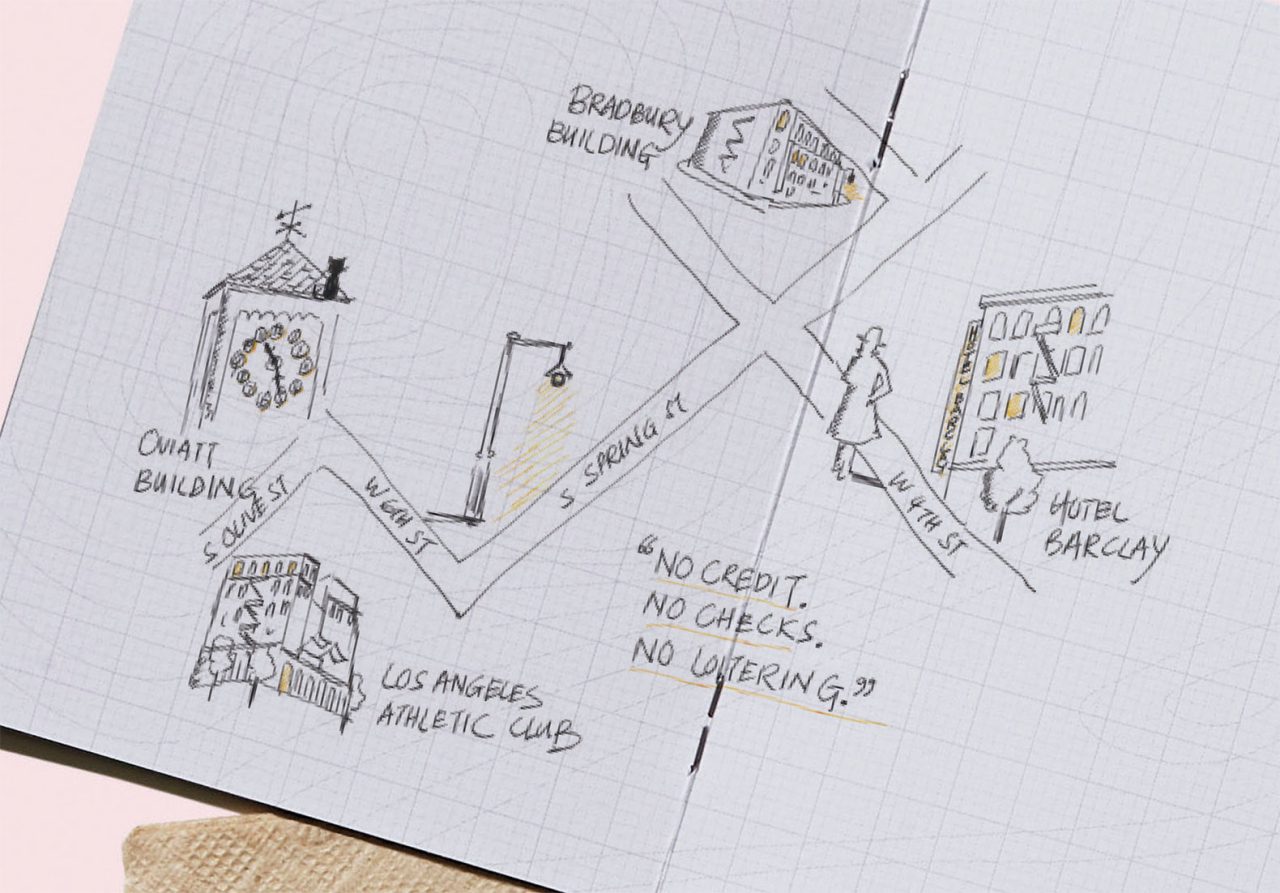 BRADBURY
BUILDING
OVIATT
BUILDING
S OLIVE ST
W 6TH ST
S SPRING ST
W 4TH ST
HOTEL BARCLAY
HOTEL
BARCLAY
LOS ANGELES
ATHLETIC CLUB
“NO CREDIT.
NO CHECKS.
NO LOITERING.”